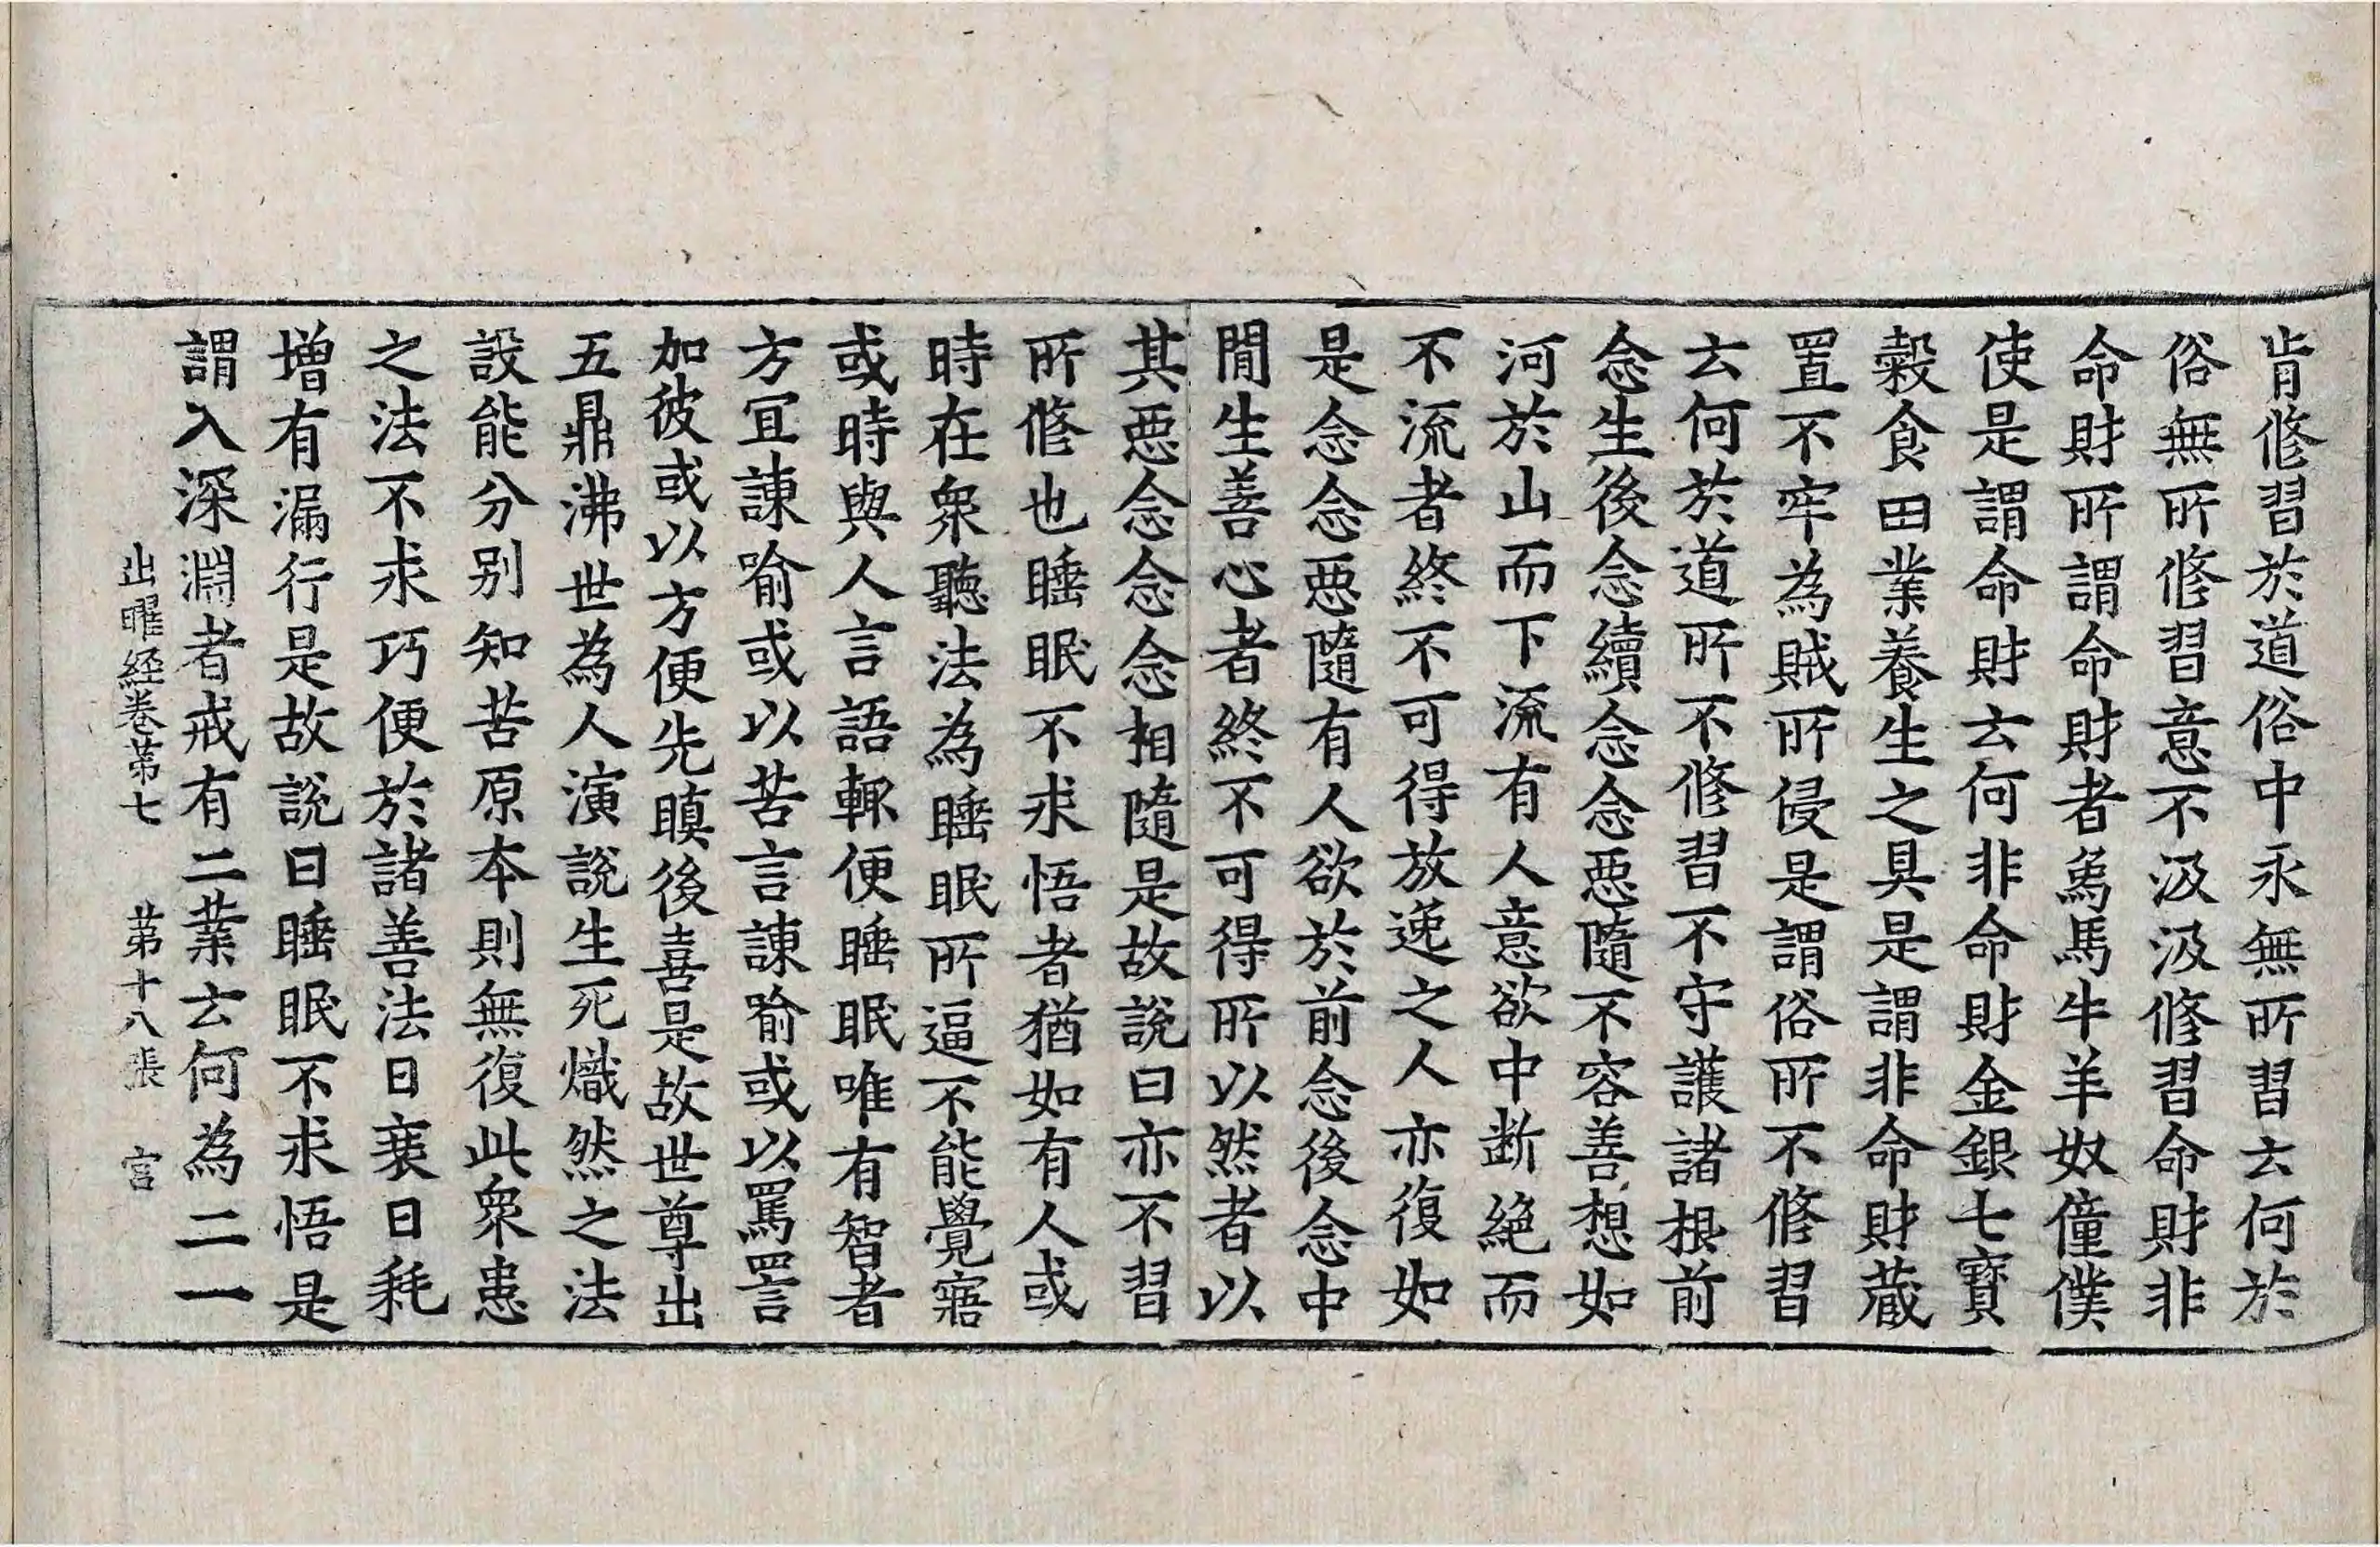 肯修習於道俗中永無所習云何於
俗無所修習意不汲汲修習命財非
命財所謂命財者象馬牛羊奴僮僕
使是謂命財云何非命財金銀七寶
穀食田業養生之具是謂非命財藏
置不牢為賊所侵是謂俗所不修習
云何於道所不修習不守護諸根前
念生後念續念念惡隨不容善想如
河於山而下流有人意欲中斷絕而
不流者終不可得放逸之人亦復如
是念念惡隨有人欲於前念後念中
間生善心者終不可得所以然者以
其惡念念念相隨是故說曰亦不習
所修也睡眠不求悟者猶如有人或
時在眾聽法為睡眠所逼不能覺寤
或時與人言語輒便睡眠唯有智者
方宜諫喻或以苦言諫喻或以罵詈
加彼或以方便先瞋後喜是故世尊出
五鼎沸世為人演說生死熾然之法
設能分別知苦原本則無復此眾患
之法不求巧便於諸善法日衰日耗
增有漏行是故說曰睡眠不求悟是
謂入深淵者戒有二業云何為二一
出曜経卷第七　第十八張　言